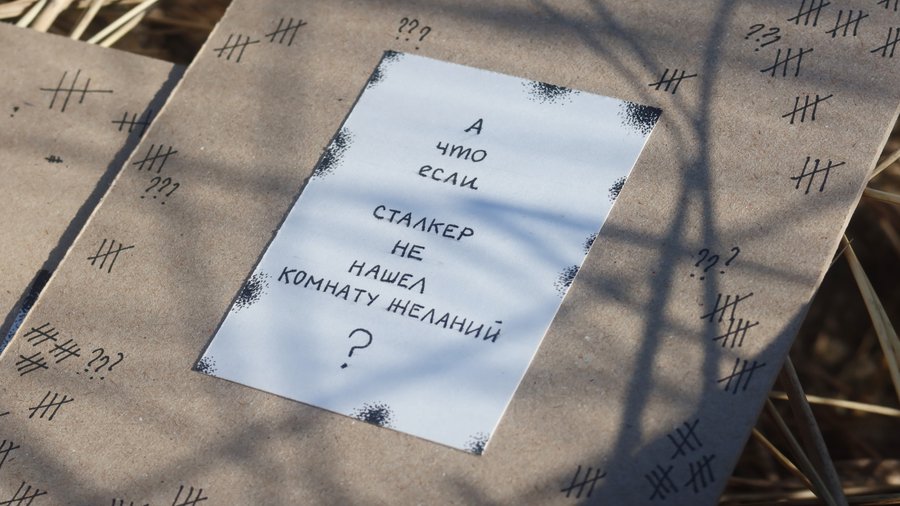 ???
???
А
что
если
???
СТАЛКЕР
НЕ
НАШЕЛ
КОМНАТУ ЖЕЛАНИЙ
?
???
???